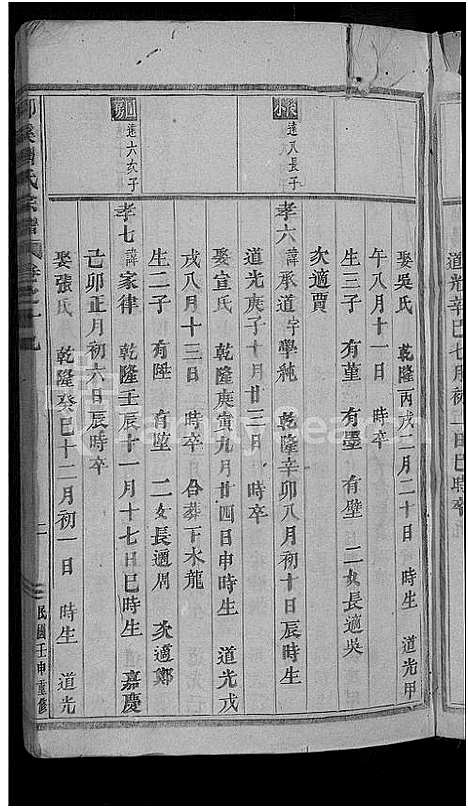 道光辛巳七月初一日巳時卒
娶吳氏 乾隆丙戌二月二十日 時生 道光甲
午八月十一日 時卒
生三子 有堇 有墨 有壁 二女長適吳
次適賈
達八長子
孝六 諱承道字學純 乾隆辛卯八月初十日辰時生
道光庚子十月廿三日 時卒
娶宣氏 乾隆庚寅九月廿四日申時生 道光戊
戌八月十三日 時卒 合葬下水龍
生二子 有陞 有堃 二女長適周 次適鄭
達六次子
孝七 諱家律 乾隆壬辰十一月十七日巳時生 嘉慶
己卯正月初六日辰時卒
娶張氏 乾隆癸巳十二月初一日 時生 道光
氏宗譜 卷之十九
二
民國壬申重修
FamilySearch